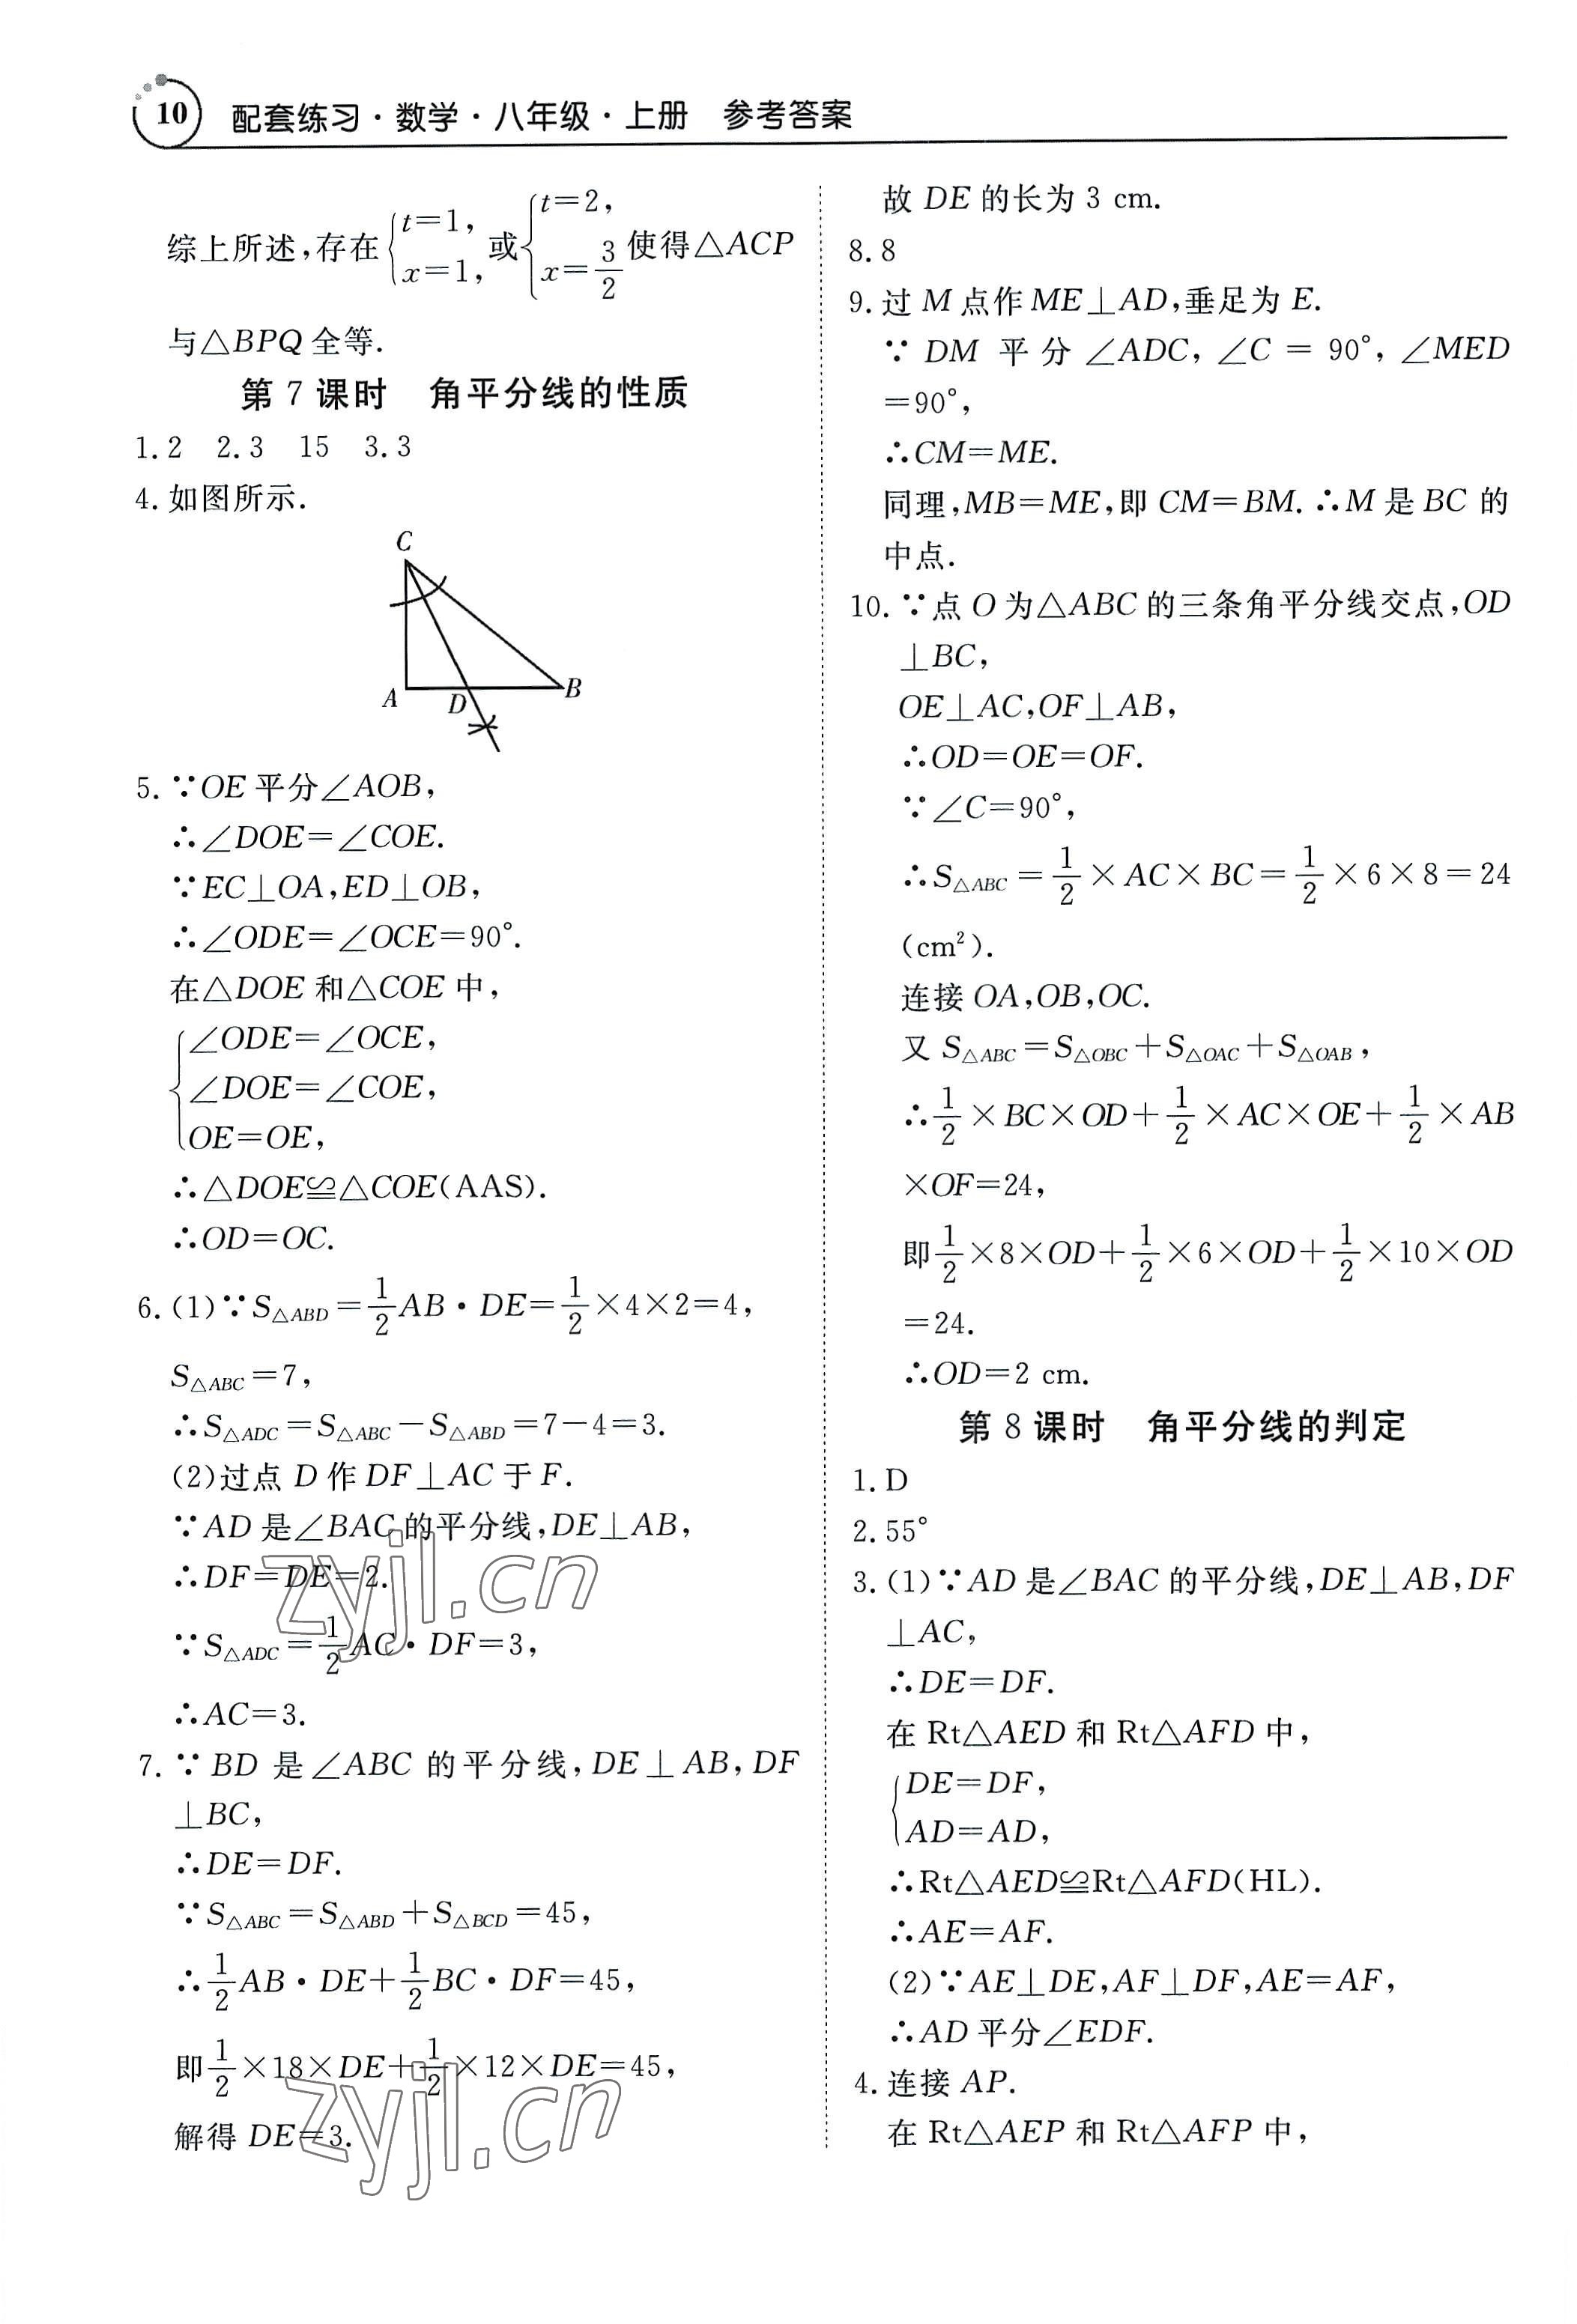 10 配套练习·数学·八年级·上册 参考答案
综上所述,存在{t=1, x=1, 或{t=2, x=3/2 使得△ACP
与△BPQ全等.
第7课时 角平分线的性质
1.2 2.3 15 3.3
4.如图所示.
C
A D B
5.∵OE平分∠AOB,
∴∠DOE=∠COE.
∵EC⊥OA,ED⊥OB,
∴∠ODE=∠OCE=90°.
在△DOE和△COE中,
∠ODE=∠OCE,
∠DOE=∠COE,
OE=OE,
∴△DOE≌△COE(AAS).
∴OD=OC.
6.(1)∵S△ABD=1/2AB·DE=1/2×4×2=4,
S△ABC=7,
∴S△ADC=S△ABC-S△ABD=7-4=3.
(2)过点D作DF⊥AC于F.
∵AD是∠BAC的平分线,DE⊥AB,
∴DF=DE=2.
∵S△ADC=1/2AC·DF=3,
∴AC=3.
7.∵BD是∠ABC的平分线,DE⊥AB,DF
⊥BC,
∴DE=DF.
∵S△ABC=S△ABD+S△BCD=45,
∴1/2AB·DE+1/2BC·DF=45,
即1/2×18×DE+1/2×12×DE=45,
解得DE=3.
故DE的长为3 cm.
8.8
9.过M点作ME⊥AD,垂足为E.
∵DM平分∠ADC,∠C=90°,∠MED
=90°,
∴CM=ME.
同理,MB=ME,即CM=BM.∴M是BC的
中点.
10.∵点O为△ABC的三条角平分线交点,OD
⊥BC,
OE⊥AC,OF⊥AB,
∴OD=OE=OF.
∵∠C=90°,
∴S△ABC=1/2×AC×BC=1/2×6×8=24
(cm²).
连接OA,OB,OC.
又S△ABC=S△OBC+S△OAC+S△OAB,
∴1/2×BC×OD+1/2×AC×OE+1/2×AB
×OF=24,
即1/2×8×OD+1/2×6×OD+1/2×10×OD
=24.
∴OD=2 cm.
第8课时 角平分线的判定
1.D
2.55°
3.(1)∵AD是∠BAC的平分线,DE⊥AB,DF
⊥AC,
∴DE=DF.
在Rt△AED和Rt△AFD中,
DE=DF,
AD=AD,
∴Rt△AED≌Rt△AFD(HL).
∴AE=AF.
(2)∵AE⊥DE,AF⊥DF,AE=AF,
∴AD平分∠EDF.
4.连接AP.
在Rt△AEP和Rt△AFP中,
zyjl.cn
zyjl.cn